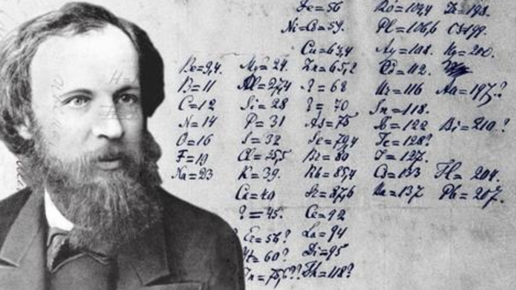 Fe=56
Ni=Co=59.
Cu=63,4
Pt=198.
Be=9,4. Mg=24. Zn=65,2 Cd=112
B=11 Al=27,4 ?=68 Ur=116 Au=197?
C=12 Si=28 ?=70 Sn=118.
N=14 P=31 As=75 Sb=122 Bi=210?
O=16 S=32 Se=79,4 Te=128?
F=19 Cl=35,5 Br=80 J=127.
Na=23 K=39. Rb=85,4 Cs=133 Tl=204.
Ca=40 Sr=87,6 Ba=137 Pb=207.
?=45. Ce=92
Er=56? La=94
Yt=60? Di=95
In=75,6? Th=118?